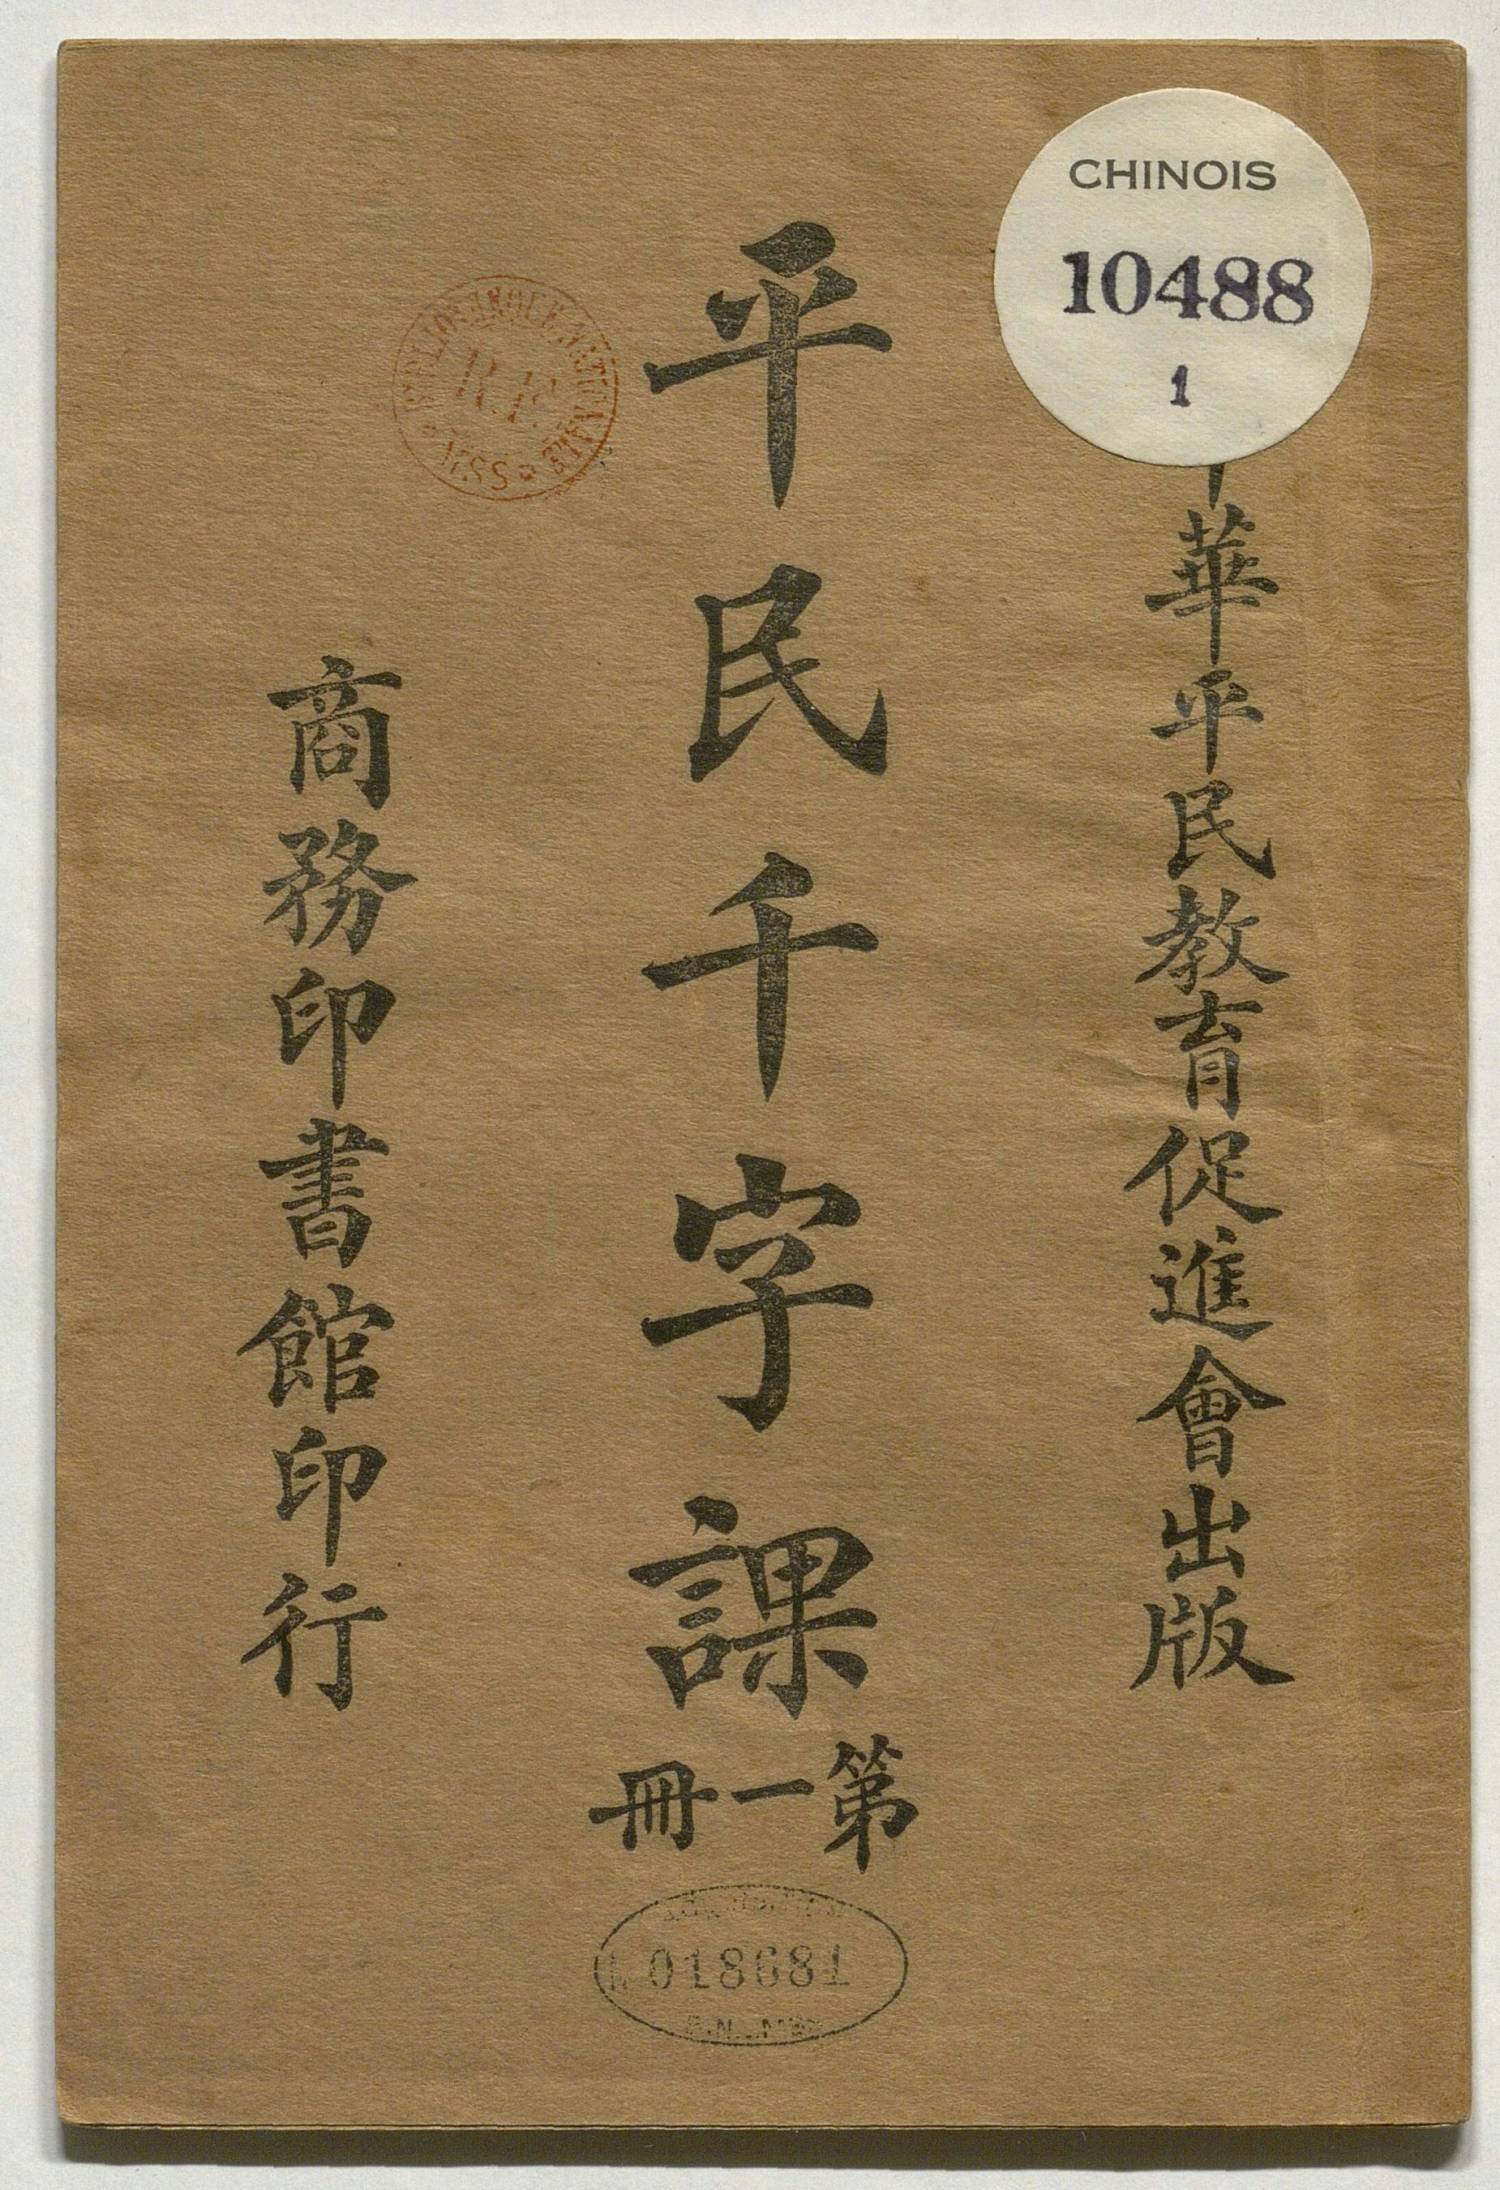 CHINOIS
10488
1
華平民教育促進會出版
平民千字課
第一冊
商務印書館印行
BIBLIOTHÈQUE NATIONALE
R.F.
MSS
018681